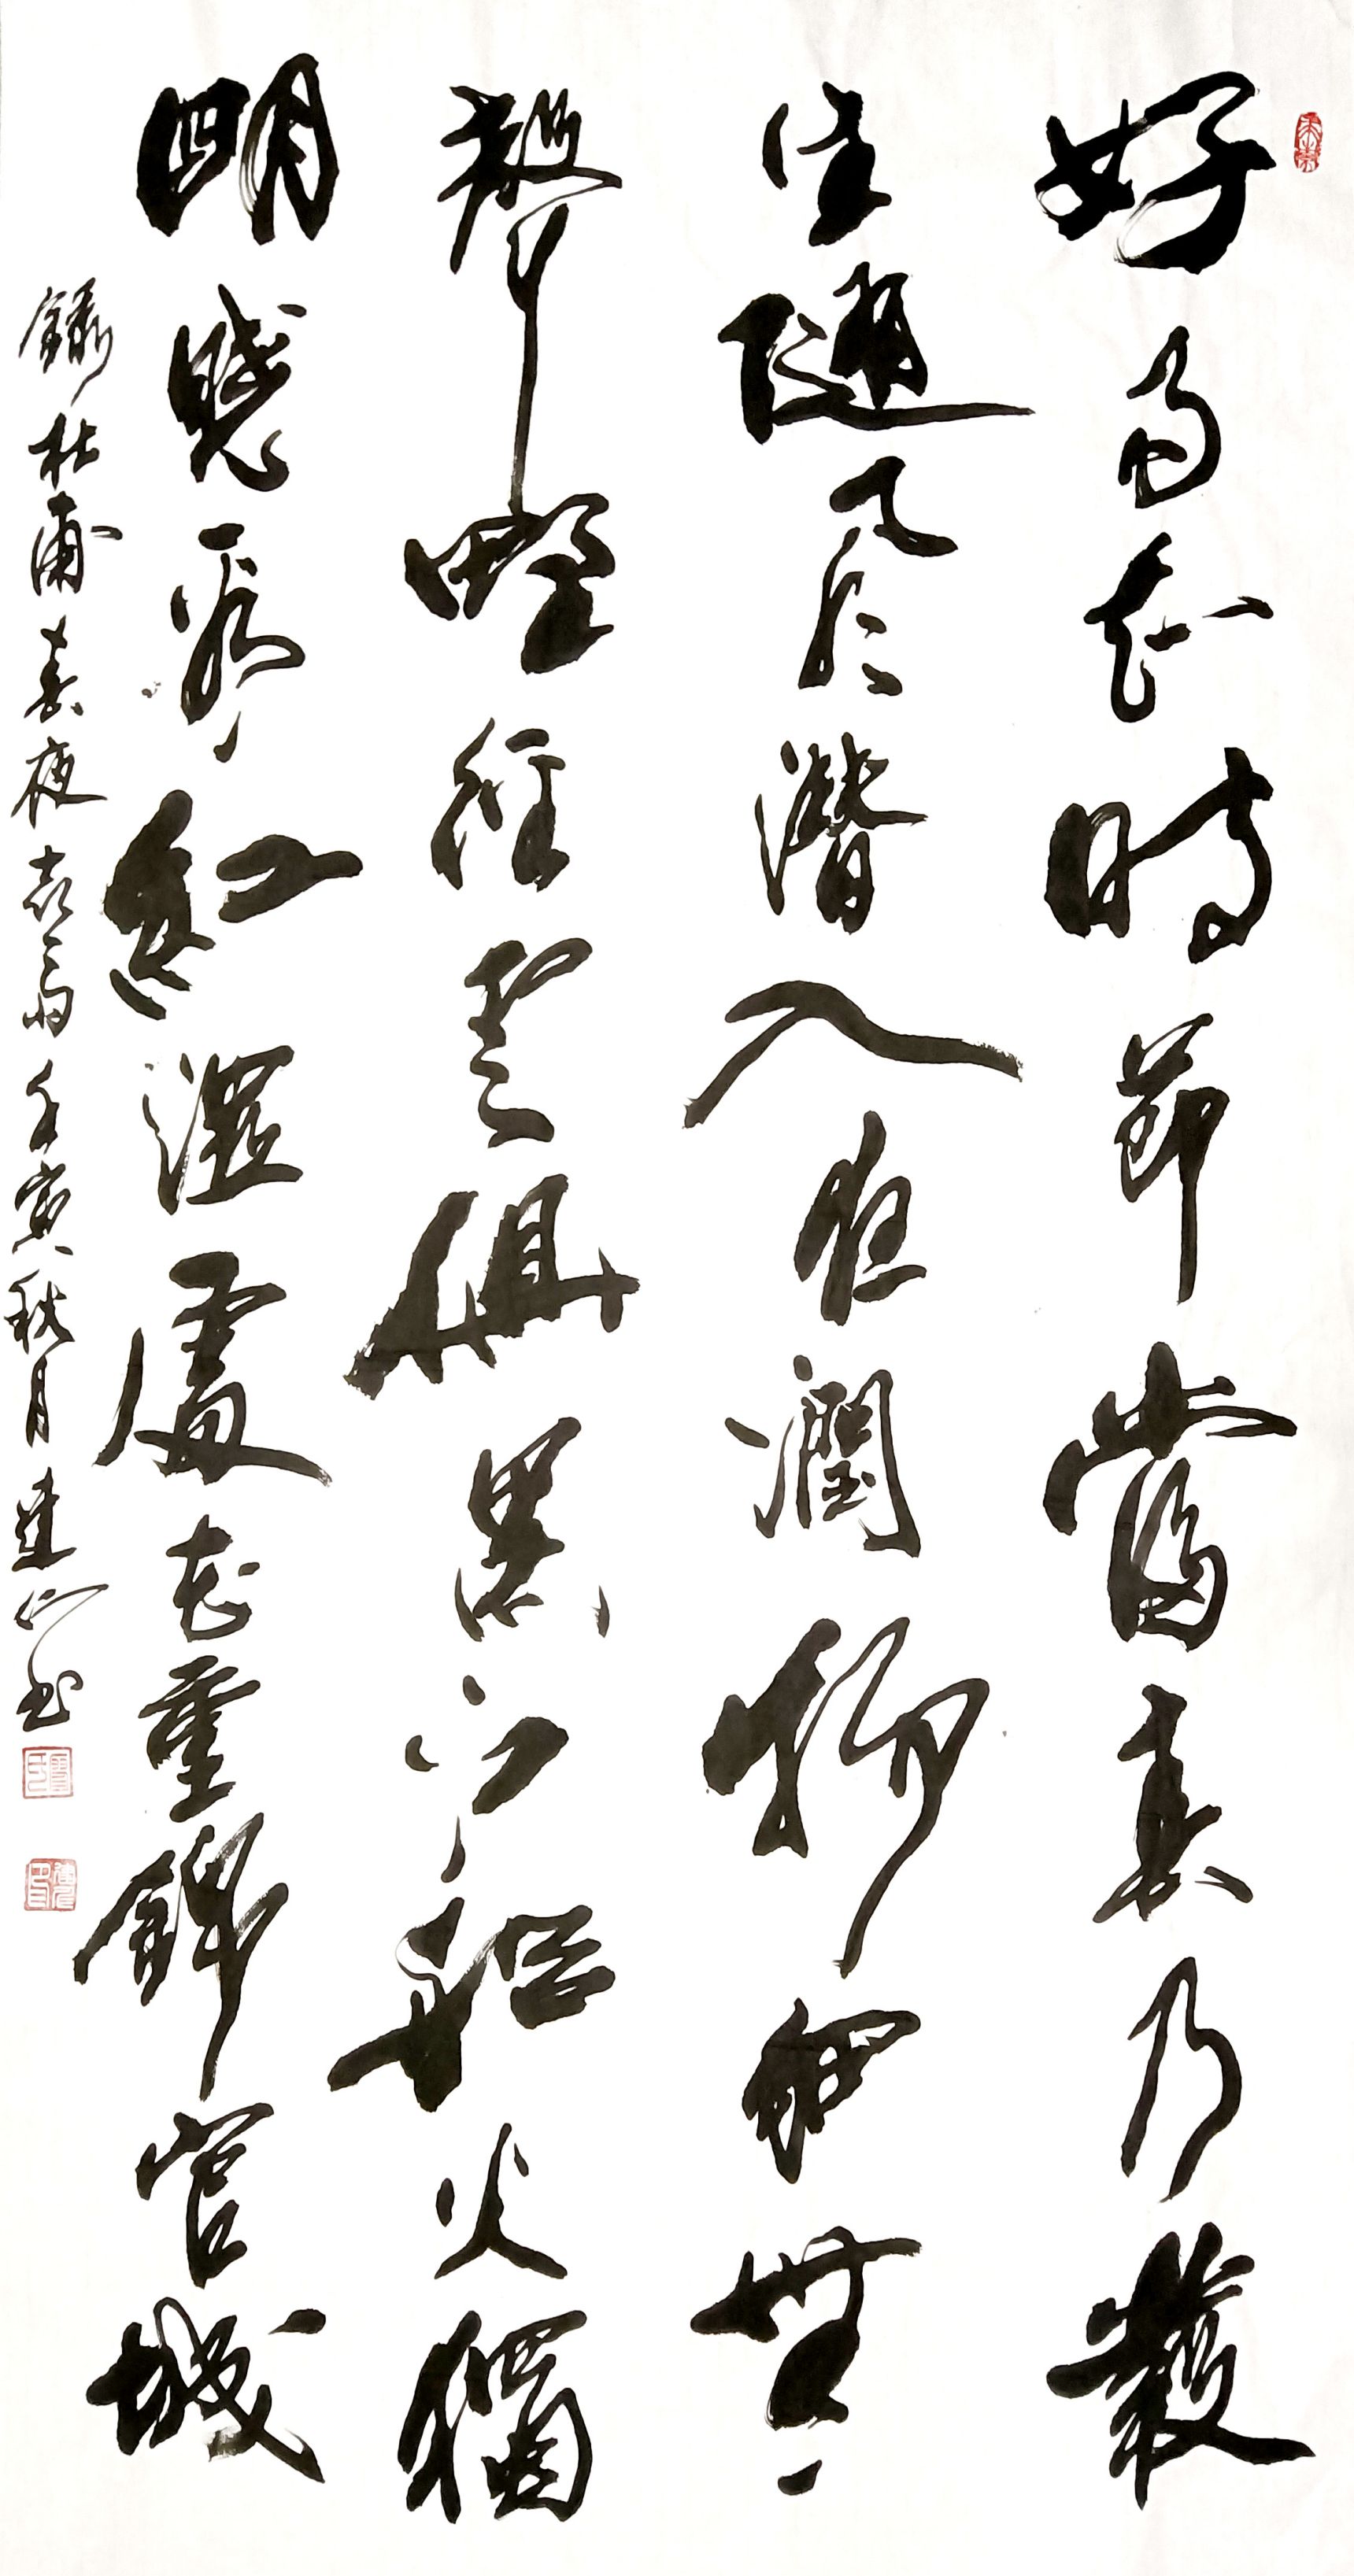 好雨知時節當春乃發
生隨風潛入夜潤物細無
聲野徑雲俱黑江船火獨
明曉看紅濕處花重錦官城
錄杜甫春夜喜雨壬寅秋月建書